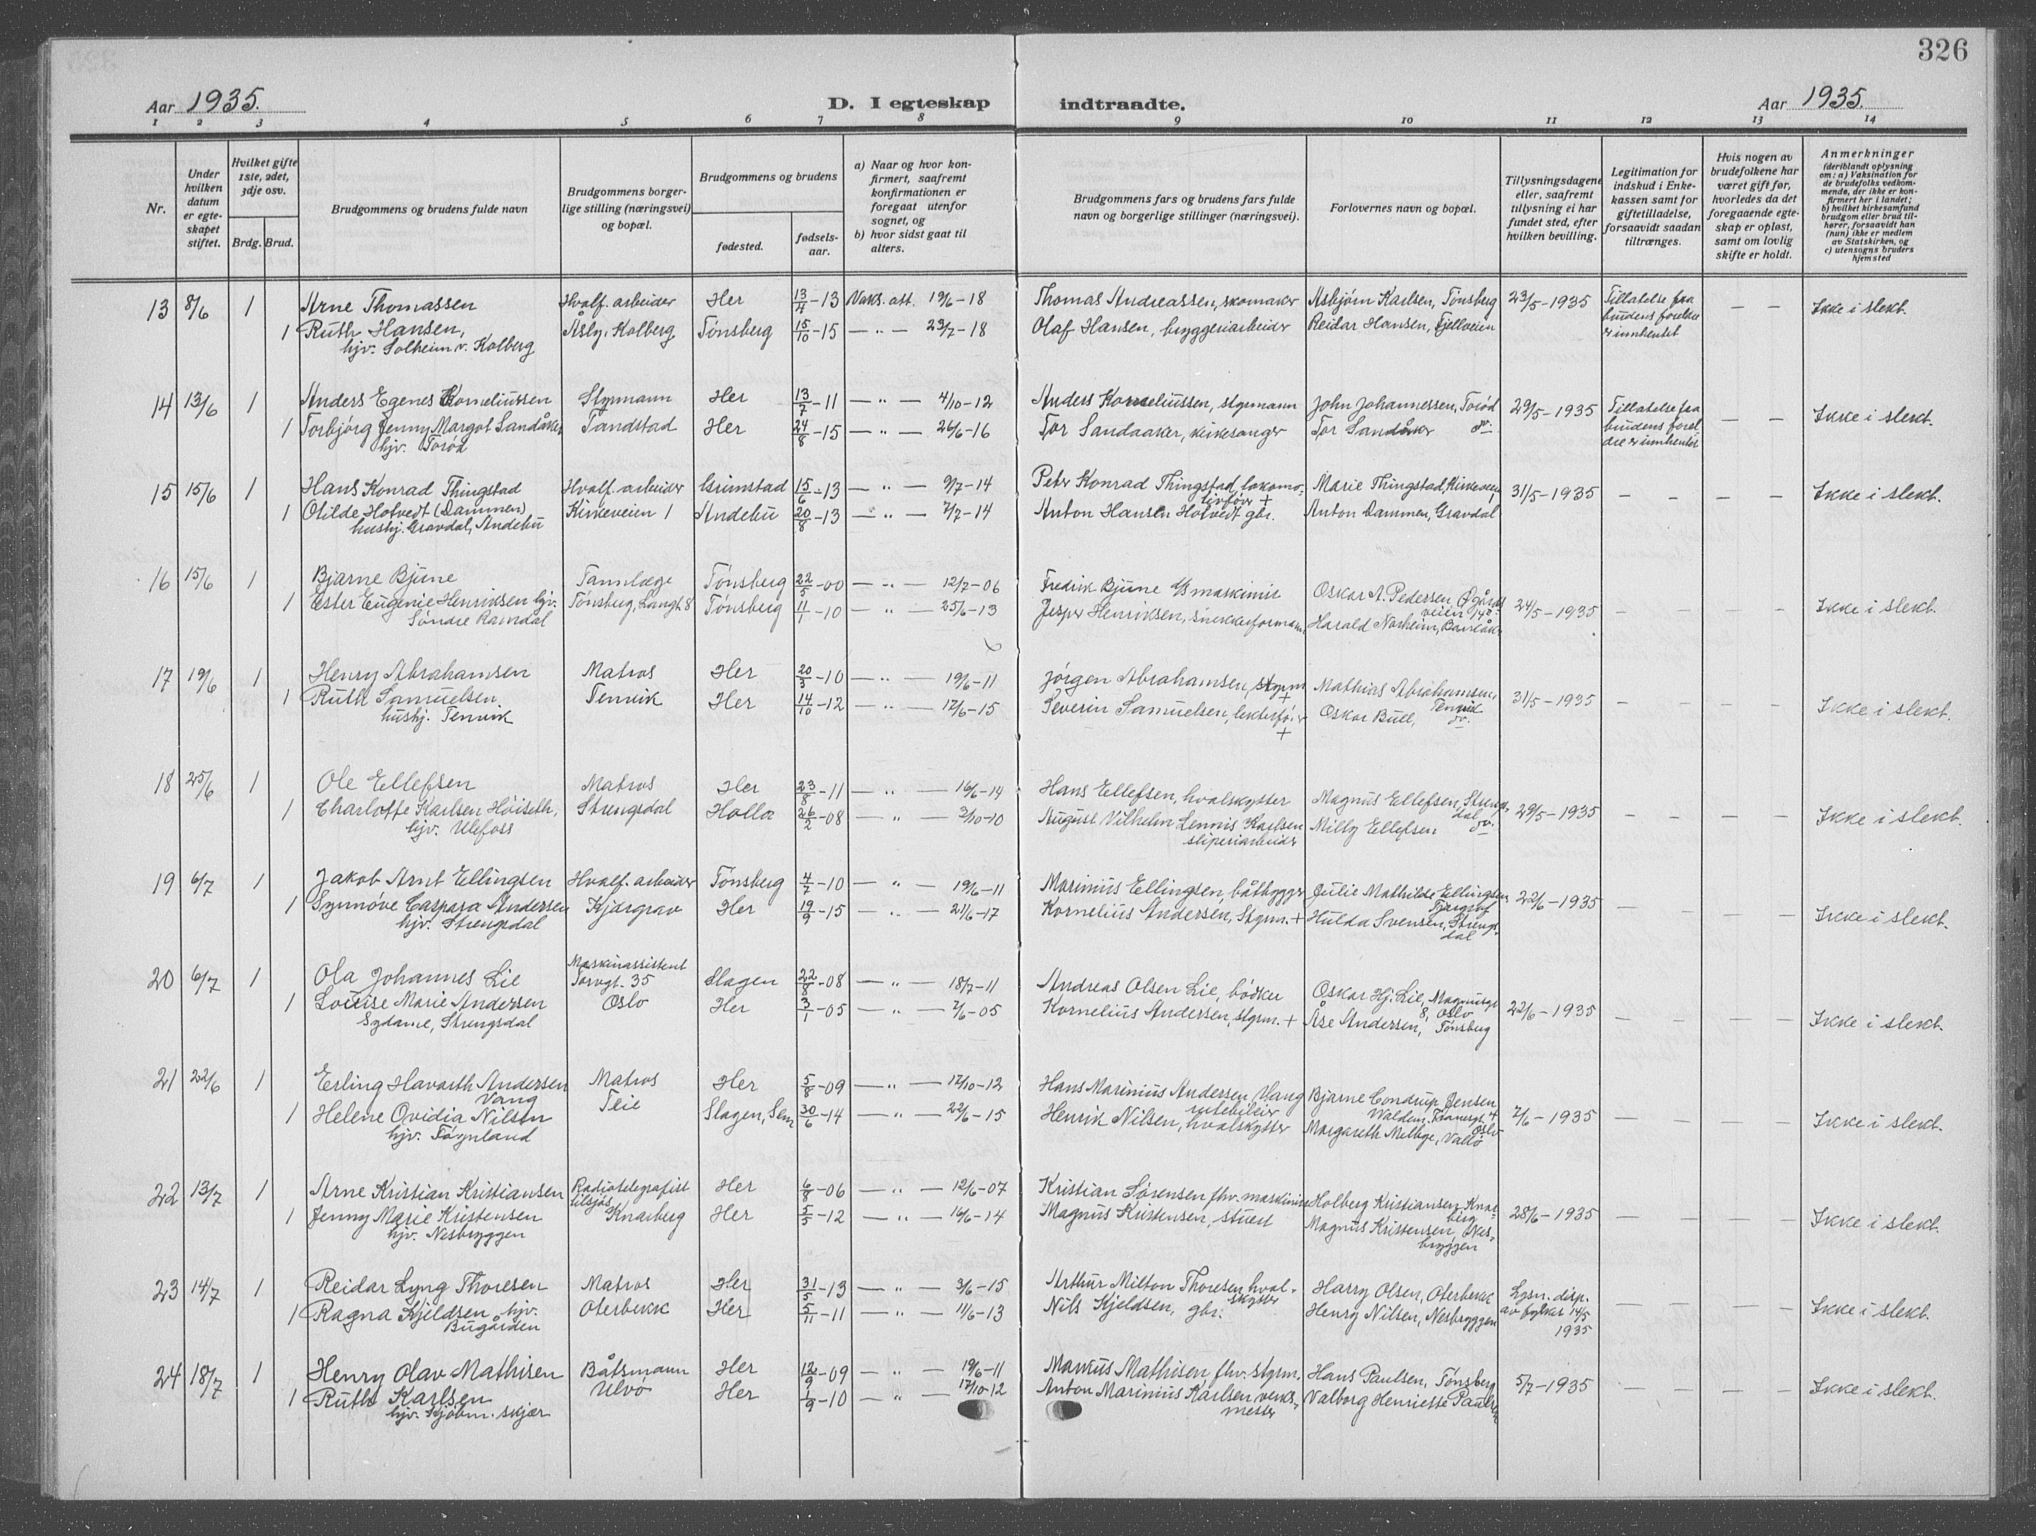 326
Aar 1935.
D. I egteskap
indtraadte.
Aar 1935.
1 2 3 4 5 6 7 8 9 10 11 12 13 14
Nr.
Under hvilken datum er egteskapet stiftet.
Hvilket gifte 1ste, 2det, 3dje osv.
Brdg. Brud.
Brudgommens og brudens fulde navn
Brudgommens borgerlige stilling (næringsvei) og bopæl.
Brudgommens og brudens
fødested.
fødselsaar.
a) Naar og hvor konfirmert, saafremt konfirmationen er foregaat utenfor sognet, og
b) hvor sidst gaat til alters.
Brudgommens fars og brudens fars fulde navn og borgerlige stillinger (næringsvei).
Forlovernes navn og bopæl.
Tillysningsdagene eller, saafremt tillysning ei har fundet sted, efter hvilken bevilling.
Legitimation for indskud i Enkekassen samt for giftetilladelse, forsaavidt saadan tiltrænges.
Hvis nogen av brudefolkene har været gift før, hvorledes da det foregaaende egteskap er opløst, samt om lovlig skifte er holdt.
Anmerkninger
(deriblandt oplysning om: a) Vaksination for de brudefolks vedkommende, der ikke er konfirmert her i landet; b) hvilket kirkesamfund brudgom eller brud tilhører, forsaavidt han (hun) ikke er medlem av Statskirken, og c) utensogns bruders hjemsted
13 8/6 1 Arne Thomassen Hvalf. arbeider Her 13/4-13 Vaks. att. 19/6-18 Thomas Andreassen, skomaker Asbjørn Karlsen, Tønsberg 23/5-1935 Tillatelse fra — — Ikke i slekt.
1 Ruth Hansen, Åsly, Kolberg Tønsberg 15/10-15 — „ — 23/7-18 Olaf Hansen, bryggeriarbeider Reidar Hansen, Fjellveien brudens foreldre
hjv. Solheim v. Kolberg er innhentet
14 13/6 1 Anders Egenes Korneliussen Styrmann Her 13/7-11 — „ — 4/10-12 Anders Korneliussen, styrmann John Johannessen, Torød 29/5-1935 Tillatelse fra — — Ikke i slekt.
1 Torbjørg Jenny Margot Sandåker Tandstad Her 24/8-15 — „ — 26/6-16 Tor Sandaaker, kirkesanger Tor Sandåker do. brudens forel-
hjv. Torød dre er innhentet
15 15/6 1 Hans Konrad Thingstad Hvalf. arbeider Grimstad 15/6-13 — „ — 9/7-14 Peter Konrad Thingstad, lokomo- Marie Thingstad, Kirkeveien 1 31/5-1935 — — — Ikke i slekt.
tivfører +
1 Otilde Hotvedt (Dammen) Kirkeveien 1 Andebu 20/8-13 — „ — 7/7-14 Anton Hansen Hotvedt gbr. Anton Dammen, Gravdal
hushj. Gravdal, Andebu
16 15/6 1 Bjarne Bjune Tannlæge Tønsberg 22/5-00 — „ — 12/7-06 Fredrik Bjune maskinist Oskar A. Pedersen 24/5-1935 — — — Ikke i slekt.
1 Ester Eugenie Henriksen hjv. Tønsberg, Langt. 8 Tønsberg 11/1-10 — „ — 25/6-13 Jesper Henriksen, snekkerformann Harald Norheim,
Søndre Ramdal
17 19/6 1 Henry Abrahamsen Matros Her 20/3-10 — „ — 19/6-11 Jørgen Abrahamsen, styrm. + Mathias Abrahamsen, Tenvik 31/5-1935 — — — Ikke i slekt.
1 Ruth Samuelsen Tenvik Her 14/10-12 — „ — 12/6-15 Severin Samuelsen, lekterfører + Oskar Bull, do.
hushj. Tenvik
18 25/6 1 Ole Ellefsen Matros Her 23/8-11 — „ — 16/6-14 Hans Ellefsen, hvalskytter Magnus Ellefsen, Strengsdal 29/5-1935 — — — Ikke i slekt.
1 Charlotte Karlsen Høiseth, Strengsdal Holla 26/2-08 — „ — 2/10-10 August Vilhelm Lennis Karlsen Milly Ellefsen do.
hjv. Ulefoss sliperiarbeider
19 6/7 1 Jakob Arnt Ellingsen Hvalf. arbeider Tønsberg 4/7-10 — „ — 19/6-11 Marinius Ellingsen, båtbygger Julie Mathilde Ellingsen 22/6-1935 — — — Ikke i slekt.
1 Synnøve Caspara Andersen Kjærgrav Her 19/9-15 — „ — 21/6-17 Kornelius Andersen, Styrm. + Hulda Svensen, Strengs-
hjv. Strengsdal dal
20 6/7 1 Ola Johannes Lie Maskinassistent Slagen 22/8-08 — „ — 18/7-11 Andreas Olsen Lie, bødker Oskar Hj. Lie, Magnusgt. 8, Oslo 22/6-1935 — — — Ikke i slekt.
Torvgt. 35
1 Louise Marie Andersen Oslo Her 3/1-05 — „ — 7/6-05 Kornelius Andersen, styrm. + Åse Andersen, Tønsberg
Sydame, Strengsdal
21 22/6 1 Erling Havarth Andersen Matros Her 5/8-09 — „ — 17/10-12 Hans Marinius Andersen Vang Bjarne Condrup Jensen 7/6-1935 — — — Ikke i slekt.
Vang rutebileier Oslo
1 Helene Ovidia Nilsen Teie Slagen, Sem 30/6-14 — „ — 22/6-15 Henrik Nilsen, hvalskytter Margareth Melhge, Vallø
hjv. Føynland
22 13/7 1 Arne Kristian Kristiansen Radiotelegrafist Her 6/8-06 — „ — 12/6-07 Kristian Sørensen fhv. maskinist Holberg Kristiansen, Knar- 28/6-1935 — — — Ikke i slekt.
tilsjøs berg
1 Jenny Marie Kristensen Knarberg Her 5/5-12 — „ — 16/6-14 Magnus Kristensen, stuert Magnus Kristensen, Nes-
hjv. Nesbryggen bryggen
23 14/7 1 Reidar Lyng Thoresen Matros Her 31/5-13 — „ — 3/6-15 Arthur Milton Thoresen, hval- Harry Olsen, Oterbekk Lysn. disp. — — — Ikke i slekt.
skytter
1 Ragna Kjeldsen, hjv. Oterbekk Her 5/11-11 — „ — 11/6-13 Nils Kjeldsen, gbr. Henry Nilsen, Nesbryggen av fylket 14/5
Bugården 1935
24 18/7 1 Henry Olav Mathisen Båtsmann Her 12/9-09 — „ — 19/6-11 Markus Mathisen fhv. styrm. Hans Paulsen, Tønsberg 5/7-1935 — — — Ikke i slekt.
1 Ruth Karlsen Ulvø Her 1/9-10 — „ — 17/10-12 Anton Marinius Karlsen verks- Valborg Henriette Paulsen
hjv. Kjøbm. skjær mester